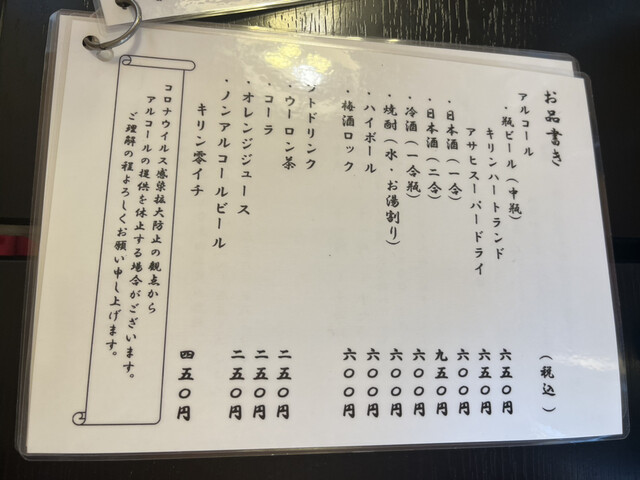 お品書き （税込）
アルコール
・瓶ビール（中瓶）
キリンハートランド 六五〇円
アサヒスーパードライ 六五〇円
・日本酒（一合） 六〇〇円
・日本酒（二合） 九五〇円
・冷酒（一合瓶） 六〇〇円
・焼酎（水・お湯割り） 六〇〇円
・ハイボール 六〇〇円
・梅酒ロック 六〇〇円
ソフトドリンク
・ウーロン茶 二五〇円
・コーラ 二五〇円
・オレンジジュース 二五〇円
・ノンアルコールビール
キリン零イチ 四五〇円
コロナウイルス感染拡大防止の観点から
アルコールの提供を休止する場合がございます。
ご理解の程よろしくお願い申し上げます。